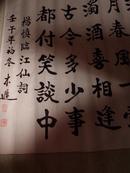 月春風一
濁酒喜相逢
古今多少事
都付笑談中
楊慎臨江仙詞
壬午年初冬